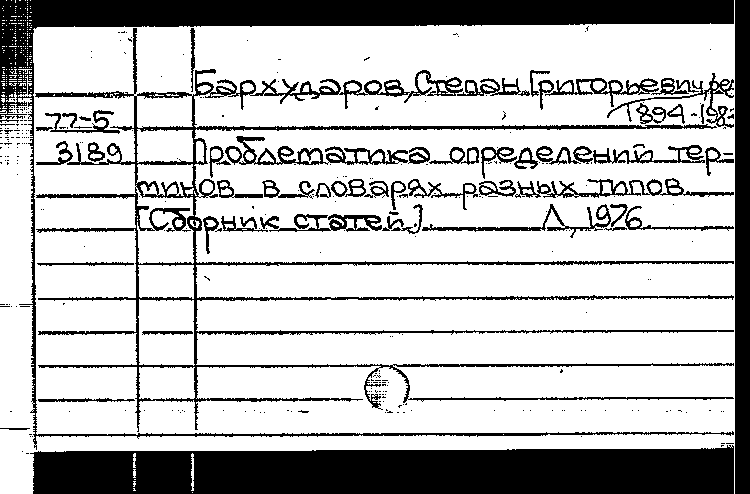 Бархударов, Степан Григорьевич, ре
1894-198
77-5
3189
Проблематика определений тер-
минов в словарях разных типов.
[Сборник статей.] Л., 1976.